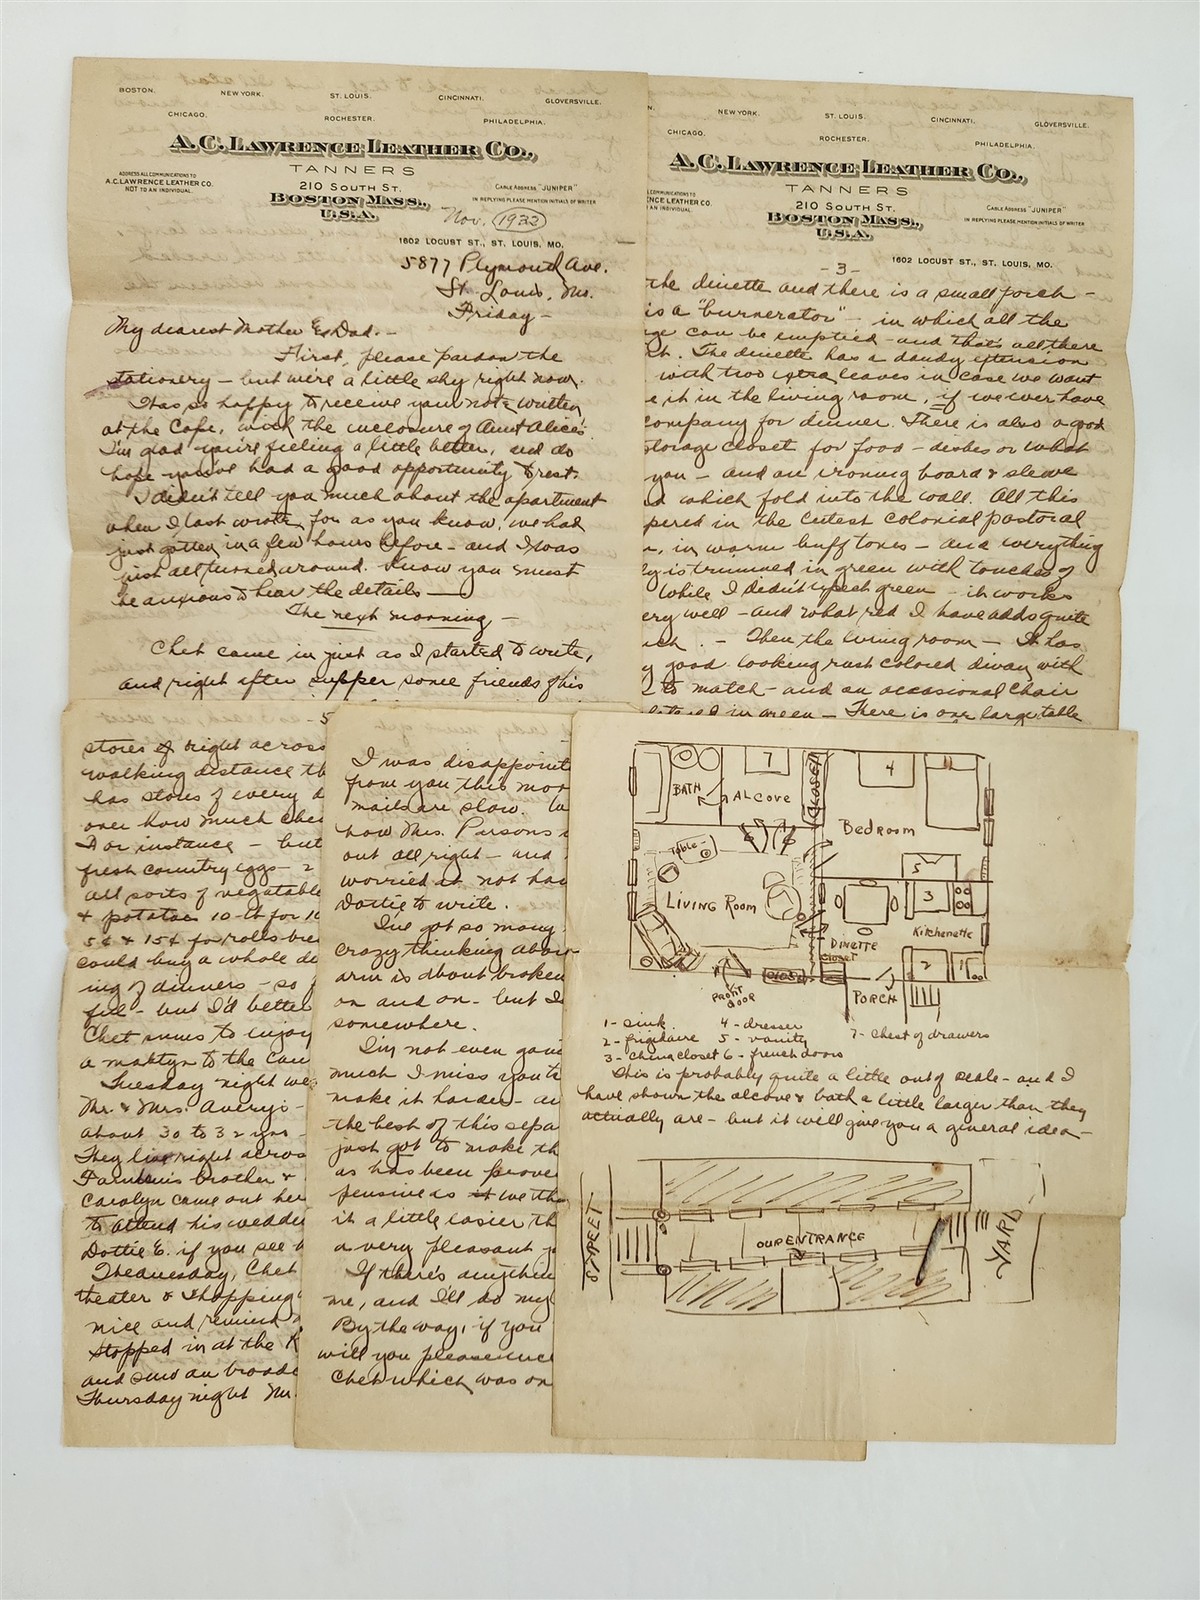 BOSTON. NEW YORK. ST. LOUIS. CINCINNATI. GLOVERSVILLE.
CHICAGO. ROCHESTER. PHILADELPHIA.
A.C. LAWRENCE LEATHER CO.,
TANNERS
ADDRESS ALL COMMUNICATIONS TO
A.C. LAWRENCE LEATHER CO.
NOT TO AN INDIVIDUAL.
210 SOUTH ST.
BOSTON MASS.,
U.S.A.
CABLE ADDRESS "JUNIPER"
IN REPLYING PLEASE MENTION INITIALS OF WRITER
Nov. 1933
1602 LOCUST ST., ST. LOUIS, MO.
5877 Plymouth Ave.
St. Louis, Mo.
Friday -
My dearest Mother & Dad. -
First, please pardon the
stationery - but we're a little shy right now.
I was so happy to receive your note written
at the Cape, with the inclosure of Aunt Alice's.
I'm glad you're feeling a little better, and do
hope you've had a good opportunity to rest.
I didn't tell you much about the apartment
when I last wrote, for as you know, we had
just gotten in a few hours before - and I was
just all turned around. Know you must
be anxious to hear the details -
The next morning -
Chet came in just as I started to write,
and right after supper some friends of his
N. NEW YORK. ST. LOUIS. CINCINNATI. GLOVERSVILLE.
CHICAGO. ROCHESTER. PHILADELPHIA.
A.C. LAWRENCE LEATHER CO.,
TANNERS
L COMMUNICATIONS TO
ENCE LEATHER CO.
AN INDIVIDUAL.
210 SOUTH ST.
BOSTON MASS.,
U.S.A.
CABLE ADDRESS "JUNIPER"
IN REPLYING PLEASE MENTION INITIALS OF WRITER
1602 LOCUST ST., ST. LOUIS, MO.
- 3 -
the dinette and there is a small porch -
is a "burnerator" - in which all the
ge can be emptied - and that's all there
The dinette has a dandy extension
with two extra leaves in case we want
e it in the living room, if we ever have
company for dinner. There is also a good
storage closet for food - dishes or what
you - and an ironing board & sleeve
d which fold into the wall. All this
pered in the cutest colonial pastoral
, in warm buff tones - and everything
ly is trimmed in green with touches of
While I didn't green - it works
ery well - and what red I have adds quite
ich. - Then the living room - It has
y good looking rust colored divan with
2 to match - and an occasional chair
in green - There is one large table
- 5
stores right across
walking distance th
has stores of every d
over how much che
For instance - but
fresh country eggs - 2
all sorts of vegetable
& potatoes 10-lb for 1
5¢ & 15¢ for rolls bre
could buy a whole d
ing of dinners - so
ful - but I'd better
Chet seems to enjoy
a martyr to the cau
Tuesday night we
Mr. & Mrs. Avery -
about 30 to 32 yrs -
They live right across
brother &
Carolyn came out her
to attend his weddi
Dottie E. if you see h
Wednesday, Chet
theater & shopping
nice and remind
stopped in at the K
and saw an broad
Thursday night Mr.
I was disappoint
from you this mor
mails are slow. W
how Mrs. Parsons
out all right - and
worried at not ha
Dottie to write.
I've got so many
crazy thinking abou
arm is about broken
on and on - but I
somewhere.
I'm not even goin
much I miss you
make it harder - a
the best of this sepa
just got to make th
as has been prove
pensive as if we th
it a little easier th
a very pleasant
If there's anythin
me, and I'll do my
By the way, if you
will you please
Chet which was on
BATH
7
ALCOVE
CLOSET
4
Bedroom
6 6
TABLE
LIVING ROOM
5
3
DINETTE
Kitchenette
CLOSET
CLOSET
2 1
FRONT DOOR
PORCH
1 - sink 4 - dresser 7 - chest of drawers
2 - frigidaire 5 - vanity
3 - china closet 6 - french doors
This is probably quite a little out of scale - and I
have shown the alcove & bath a little larger than they
actually are - but it will give you a general idea -
STREET
OUR ENTRANCE
YARD